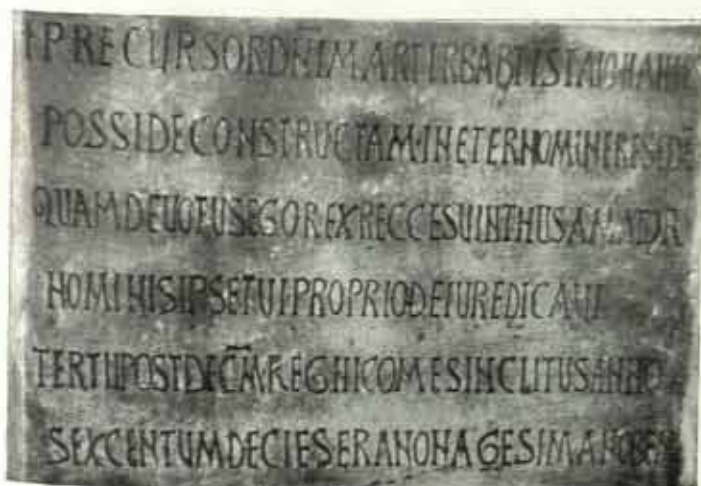 + PRECURSOR DNI MARTIR BABTISTA IOHANNES
POSSIDE CONSTRUCTAM · IN ETERNO MUNERE SEDE
QUAM DEUOTUS EGO REX RECCESUINTHUS AMATOR
NOMINIS IPSE TUI PROPRIO DE IURE DICAUI
TERTII POST DECM REGNI COMES INCLITUS ANNO
SEXCENTUM DECIES ERA NONAGESIMA NOBEM